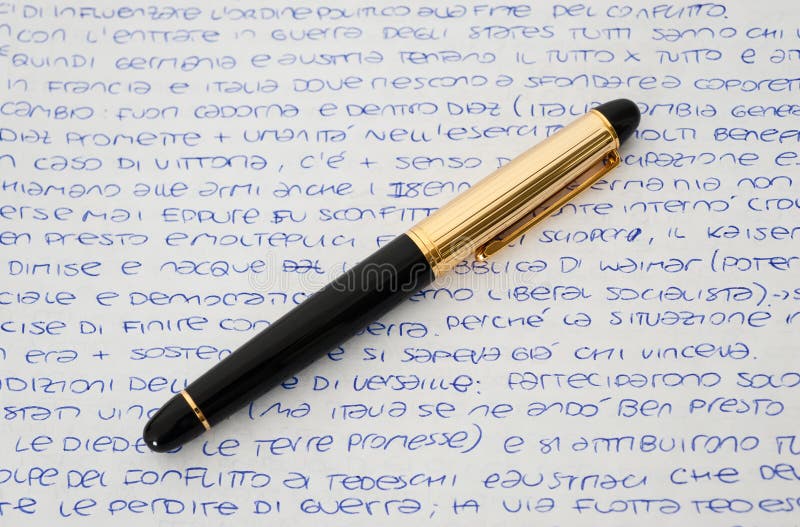 DI INFLUENZARE L'ORDINE POLITICO ALLA FINE DEL CONFLITTO.
CON L'ENTRATE IN GUERRA DEGLI STATES TUTTI SANNO CHI
QUINDI GERMANIA E AUSTRIA TENTANO IL TUTTO X TUTTO E
IN FRANCIA E ITALIA DOVE RIESCONO A SFONDARE A CAPORET
CAMBIO: FUORI CADORNA E DENTRO DIAZ (ITALIA CAMBIA GENERA
DIAZ PROMETTE + UMANITÁ NELL'ESERCI MOLTI BENEF
N CASO DI VITTORIA, C'É + SENSO D CIPAZIONE E
HIAMANO ALLE ARMI ANCHE I 18ENN ERMANIA NON
ERSE MAI EPPURE FU SCONFITT ONTE INTERNO CROL
EN PRESTO E MOLTEPLICI F I SCIOPERI, IL KAISER
DIMISE E NACQUE LA UBBLICA DI WAIMAR (POTER
CIALE E DEMOCRATI ERNO LIBERAL SOCIALISTA)->S
CISE DI FINIRE CON ERRA. PERCHÉ LA SITUAZIONE IN
N ERA + SOSTEN E SI SAPEVA GIÁ CHI VINCEVA.
DIZIONI DELL E DI VERSAILLE: PARTECIPARONO SOLO
STATI VINC (MA ITALIA SE NE ANDÓ BEN PRESTO
LE DIEDE LE TERRE PROMESSE) E SI ATTRIBUIRONO TU
OLPE DEL CONFLITTO AI TEDESCHI E AUSTRIACI CHE DEV
LE PERDITE DI GUERRA; VIA FLOTTA TEDES
dreamstime
dreamstime
dreamstime